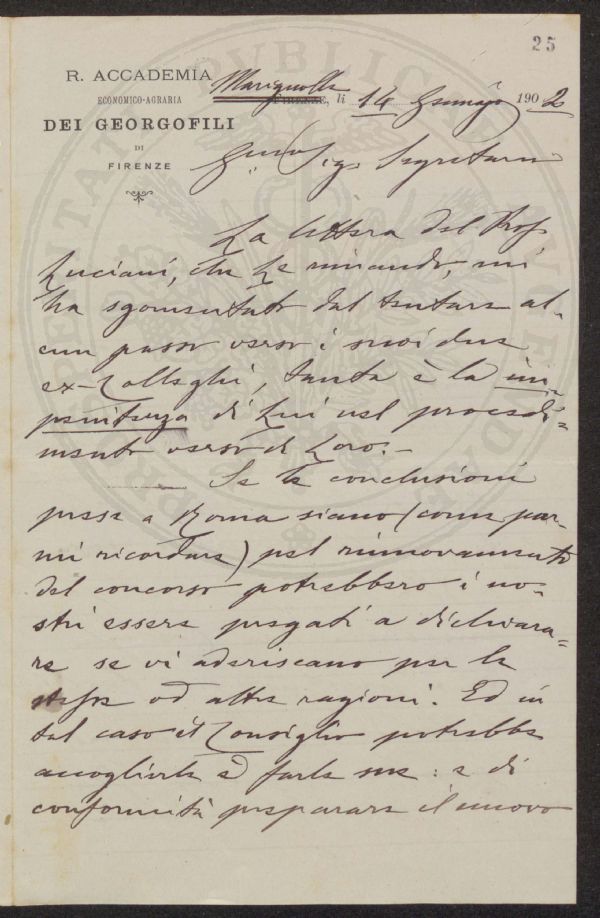 25
R. ACCADEMIA
ECONOMICO-AGRARIA
DEI GEORGOFILI
DI
FIRENZE
Marignolle
FIRENZE, li 14 Gennajo 1902
Sig. Segretario
La lettera del Prof
Luciani, che Le rimando, mi
ha sgomentato dal tentare al-
cun passo verso i suoi due
ex-Colleghi, tanta è la im
penitenza di Lui nel procedi-
mento verso di Loro.-
Se le conclusioni
prese a Roma siano (come par-
mi ricordare) pel rinnovamento
del concorso potrebbero i no-
stri essere pregati a dichiara-
re se vi aderiscano per le
stesse od altre ragioni. Ed in
tal caso il Consiglio potrebbe
accoglierle e farle sue: e di
conformità preparare il nuovo
PROSPERITATI PVBLICAE AVGENDAE